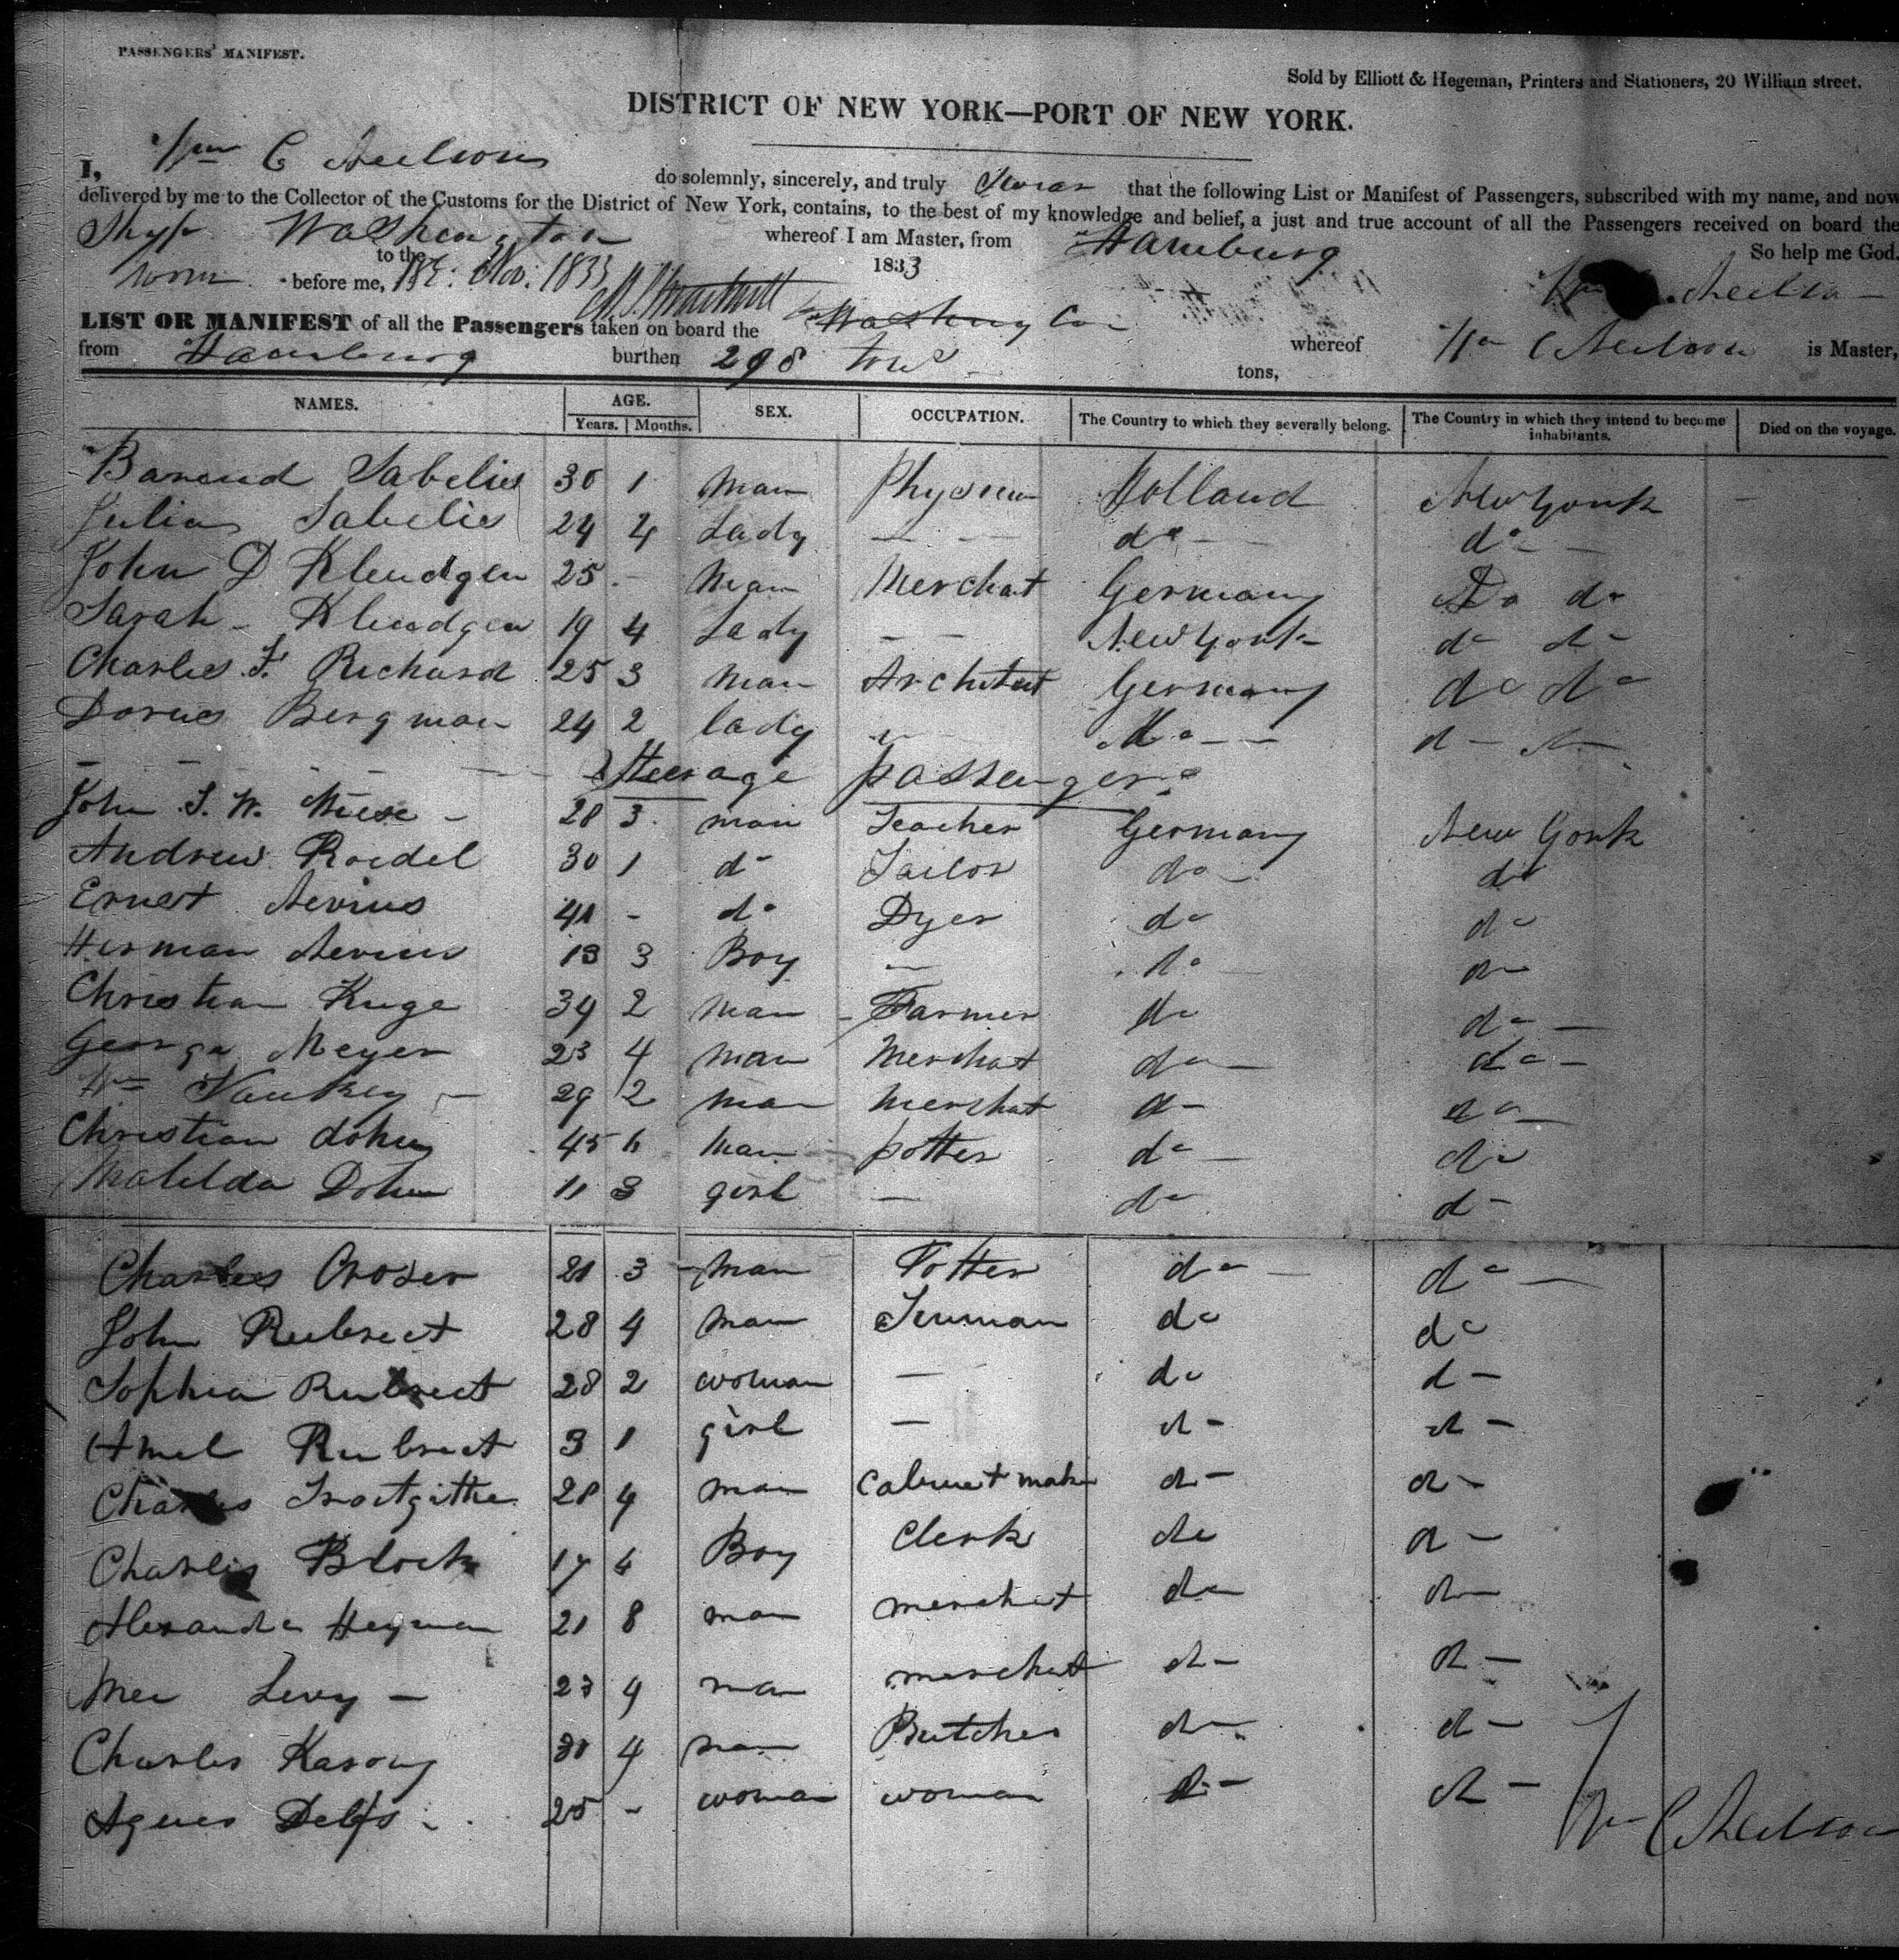 PASSENGERS' MANIFEST.
Sold by Elliott & Hegeman, Printers and Stationers, 20 William street.
DISTRICT OF NEW YORK—PORT OF NEW YORK.
I, Wm C Neilson do solemnly, sincerely, and truly Swear that the following List or Manifest of Passengers, subscribed with my name, and now
delivered by me to the Collector of the Customs for the District of New York, contains, to the best of my knowledge and belief, a just and true account of all the Passengers received on board the
Ship Washington whereof I am Master, from Hamburg
to the 1833 So help me God.
Sworn before me, 18 Nov: 1833 Wm C Neilson
LIST OR MANIFEST of all the Passengers taken on board the Washington whereof Wm C Neilson is Master,
from Hamburg burthen 298 tons tons,
NAMES. AGE. SEX. OCCUPATION. The Country to which they severally belong. The Country in which they intend to become inhabitants. Died on the voyage.
Years. Months.
Barend Sabelis 30 1 man Physician Holland New York
Julia Sabelis 24 4 Lady — do do
John D Kleudgen 25 - Man Merchat Germany Do do
Sarah Kleudgen 19 4 Lady — New York do do
Charles F. Richard 25 3 man Architect Germany do do
Bergman 24 2 lady do do
Steerage passengers
John S. W. 28 3 man Teacher Germany New York
Andrew Roedel 30 1 do Tailor do do
Ernest Nevius 41 - do Dyer do do
Herman Nevius 13 3 Boy — do do
Christian Kuge 39 2 man Farmer do do
George Meyer 23 4 man Merchat do do
Wm 29 2 man Merchat do do
Christian dohm 45 6 man potter do do
Matilda Dohm 11 3 girl — do do
Charles Croser 21 3 man Potter do do
John Rubrect 28 4 man do do
Sophia Rubrect 28 2 woman — do do
Amel Rubrect 3 1 girl — do do
Charles 28 4 man Cabinet maker do do
Charles Block 17 6 Boy Clerk do do
Alexander Heyman 21 8 man merchat do do
Levy — 23 4 man merchat do do
Charles 30 4 man Butcher do do
Agnes Delfs 25 - woman woman do do
Wm C Neilson